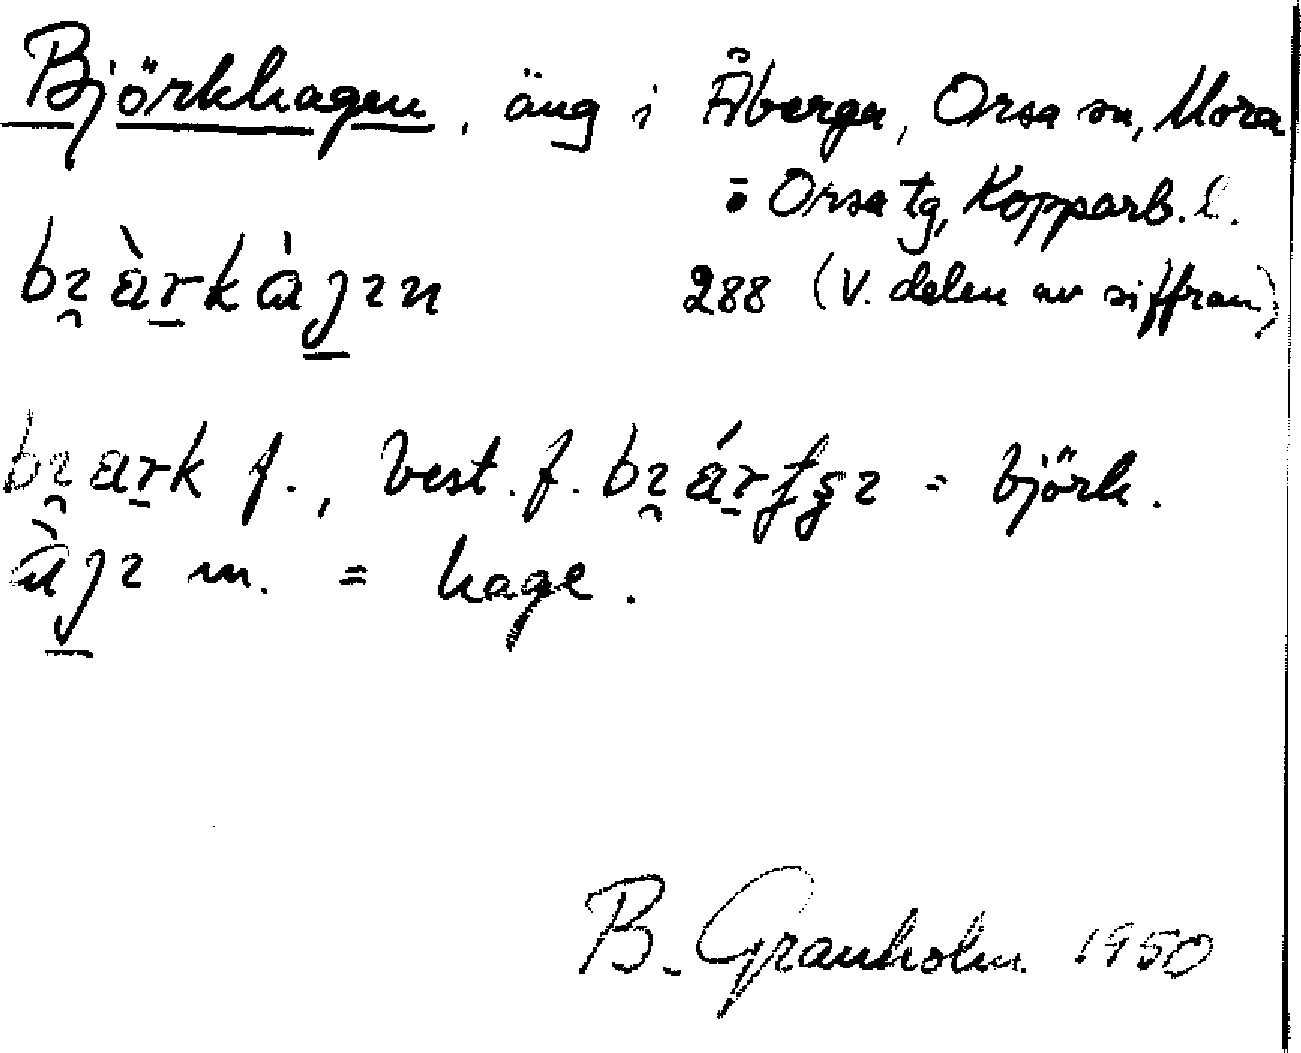 Björkhagen, äng i Åberga, Orsa sn, Mora
o Orsa tg, Kopparb. l.
288 (V. delen av siffran)
f., best. f. = björk.
m. = hage.
B. Granholm 1950